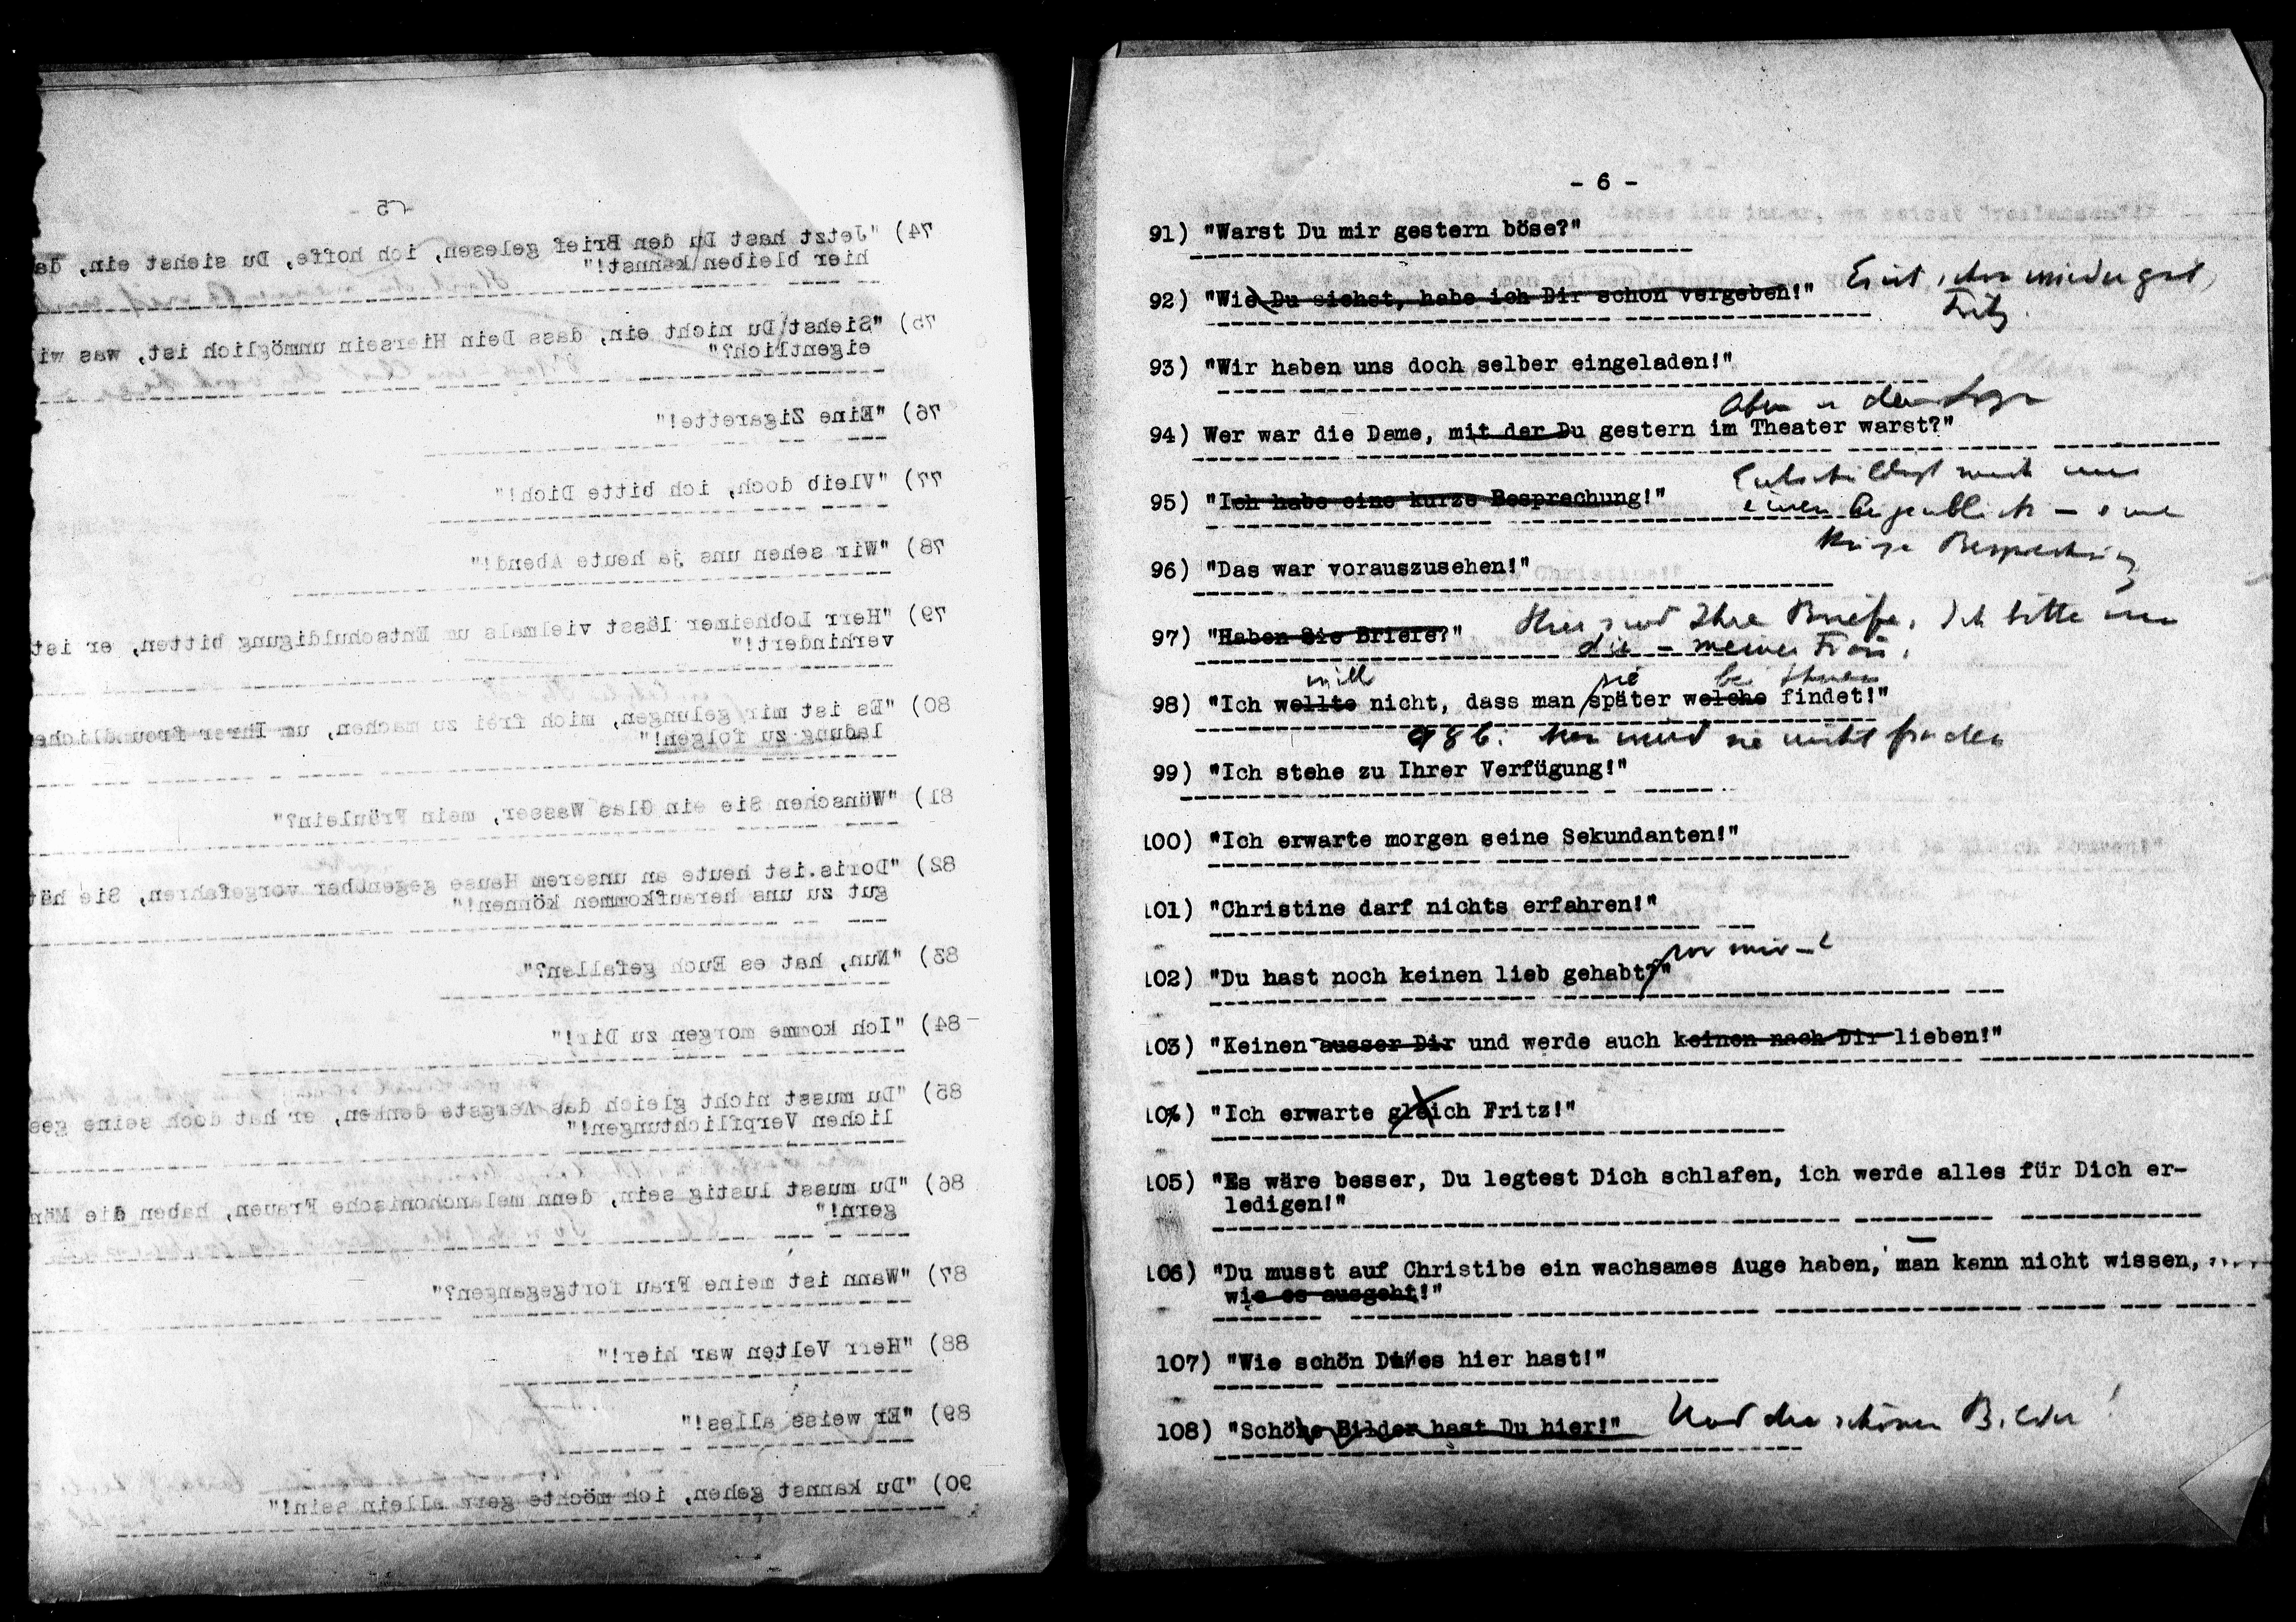 - 5 -
74) "Jetzt hast Du den Brief gelesen, ich hoffe, Du siehst ein, da
hier bleiben kannst!"
75) "Siehst Du nicht ein, dass Dein Hiersein unmöglich ist, was wi
eigentlich?"
76) "Eine Zigarette!"
77) "Vleib doch, ich bitte Dich!"
78) "Wir sehen uns ja heute Abend!"
79) "Herr Lobheimer lässt vielmals um Entschuldigung bitten, er ist
verhindert!"
80) "Es ist mir gelungen, mich frei zu machen, um Ihrer freundliche
ladung zu folgen!"
81) "Wünschen Sie ein Glas Wasser, mein Fräulein?"
82) "Doris.ist heute an unserem Hause gegenüber vorgefahren, Sie hät
gut zu uns heraufkommen können!"
83) "Nun, hat es Euch gefallen?"
84) "Ich komme morgen zu Dir!"
85) "Du musst nicht gleich das Aergste denken, er hat doch seine ges
lichen Verpflichtungen!"
86) "Du musst lustig sein, denn melanchonische Frauen, haben die Män
gern!"
87) "Wann ist meine Frau fortgegangen?"
88) "Herr Velten war hier!"
89) "Er weiss alles!"
90) "Du kannst gehen, ich möchte gern allein sein!"
- 6 -
91) "Warst Du mir gestern böse?"
92) "Wie Du siehst, habe ich Dir schon vergeben!" schon wieder gut,
Fritz.
93) "Wir haben uns doch selber eingeladen!"
94) Wer war die Dame, mit der Du gestern im Theater warst?"
95) "Ich habe eine kurze Besprechung!" Entschuldigt mich nur
einen Augenblick – eine
kurze Besprechung
96) "Das war vorauszusehen!"
97) "Haben Sie Briefe?" Hier sind Ihre Briefe. Ich bitte um
die – meiner Frau.
will sie bei Ihnen
98) "Ich wollte nicht, dass man später welche findet!"
98b. Man wird sie nicht finden
99) "Ich stehe zu Ihrer Verfügung!"
100) "Ich erwarte morgen seine Sekundanten!"
101) "Christine darf nichts erfahren!"
vor mir –?
102) "Du hast noch keinen lieb gehabt?"
103) "Keinen ausser Dir und werde auch keinen nach Dir lieben!"
104) "Ich erwarte gleich Fritz!"
105) "Es wäre besser, Du legtest Dich schlafen, ich werde alles für Dich er-
ledigen!"
106) "Du musst auf Christibe ein wachsames Auge haben, man kann nicht wissen, ....
wie es ausgeht!"
107) "Wie schön Du es hier hast!"
108) "Schöne Bilder hast Du hier!" Und die schönen Bilder!